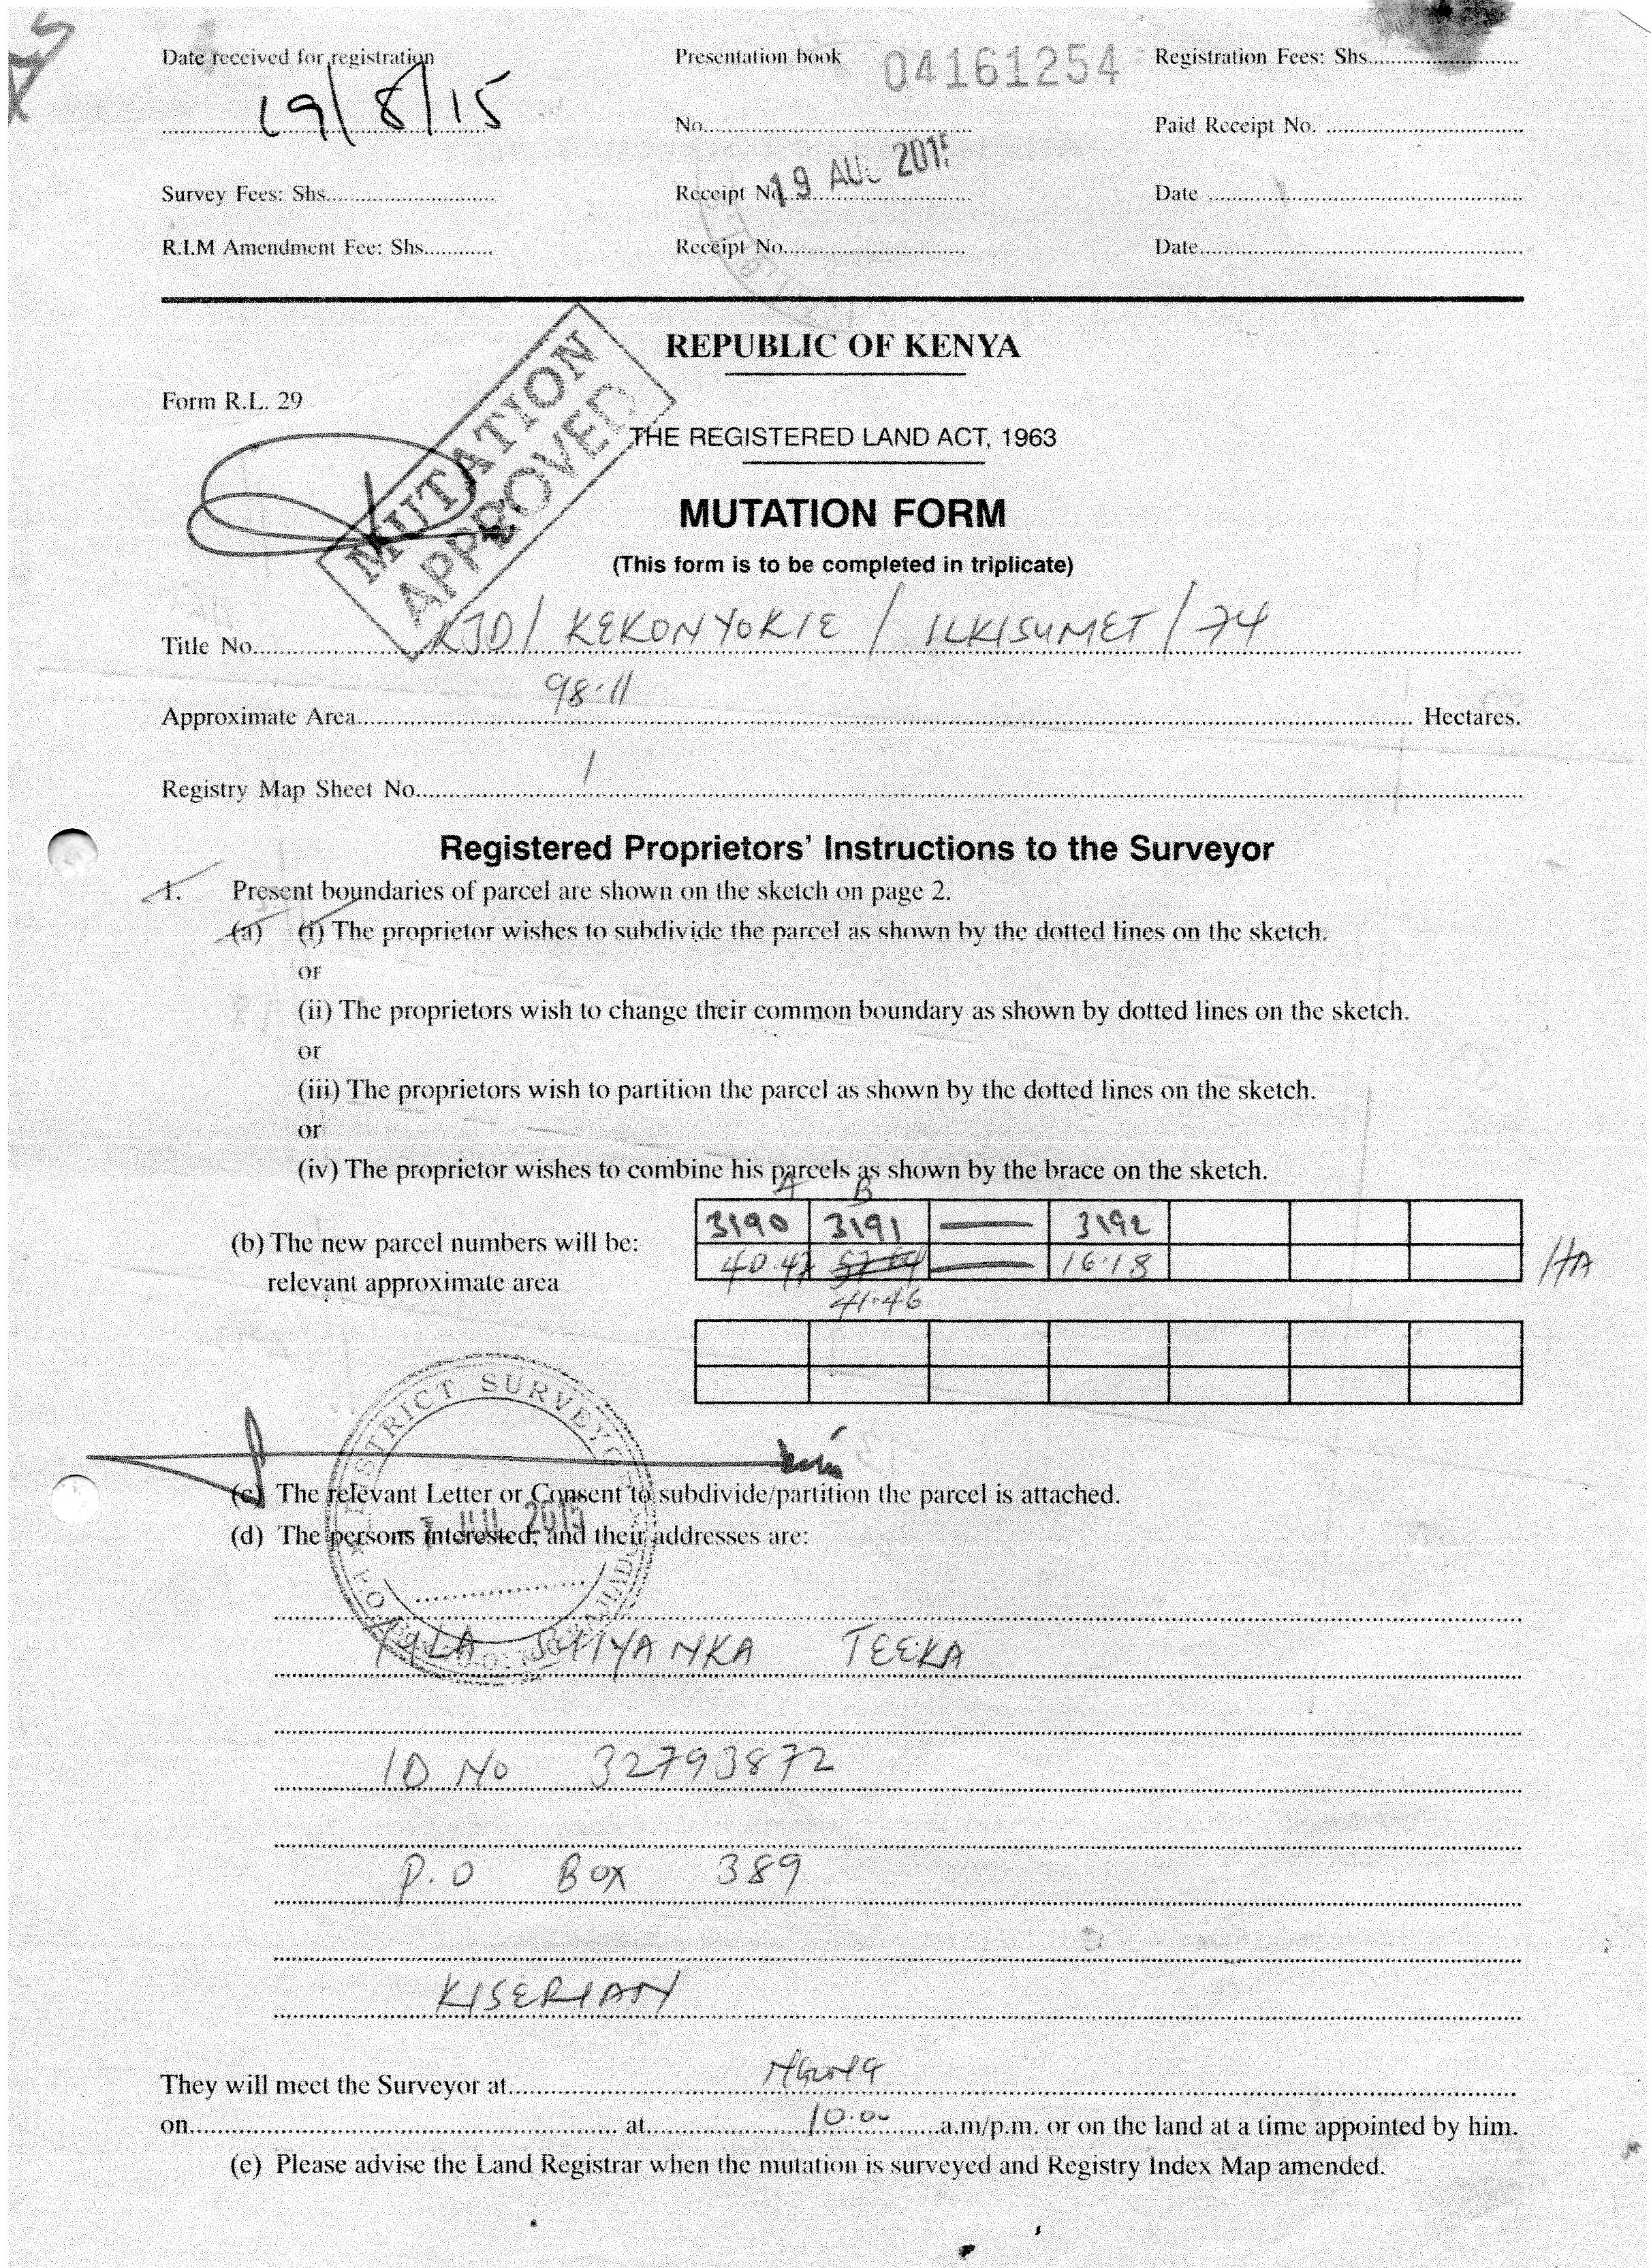 Date received for registration Presentation book 04161254 Registration Fees: Shs..............
19/8/15
No............ Paid Receipt No. ............
19 AUG 2015
Survey Fees: Shs............ Receipt No............ Date ............
R.I.M Amendment Fee: Shs............ Receipt No............ Date............
REPUBLIC OF KENYA
Form R.L. 29
MUTATION
APPROVED
THE REGISTERED LAND ACT, 1963
MUTATION FORM
(This form is to be completed in triplicate)
Title No. KJD/ KEKONYOKIE / ILKISUMET / 74
Approximate Area 98.11 Hectares.
Registry Map Sheet No. 1
Registered Proprietors' Instructions to the Surveyor
1. Present boundaries of parcel are shown on the sketch on page 2.
(a) (i) The proprietor wishes to subdivide the parcel as shown by the dotted lines on the sketch.
or
(ii) The proprietors wish to change their common boundary as shown by dotted lines on the sketch.
or
(iii) The proprietors wish to partition the parcel as shown by the dotted lines on the sketch.
or
(iv) The proprietor wishes to combine his parcels as shown by the brace on the sketch.
A B
(b) The new parcel numbers will be: 3190 3191 3192
relevant approximate area 40.47 16.18 HA
41.46
DISTRICT SURVEYOR
(c) The relevant Letter or Consent to subdivide/partition the parcel is attached.
JUL 2015
(d) The persons interested, and their addresses are:
TEEKA
ID No 32793872
P.O Box 389
KISERIAN
They will meet the Surveyor at............
on............ at 10.00 a.m/p.m. or on the land at a time appointed by him.
(e) Please advise the Land Registrar when the mutation is surveyed and Registry Index Map amended.